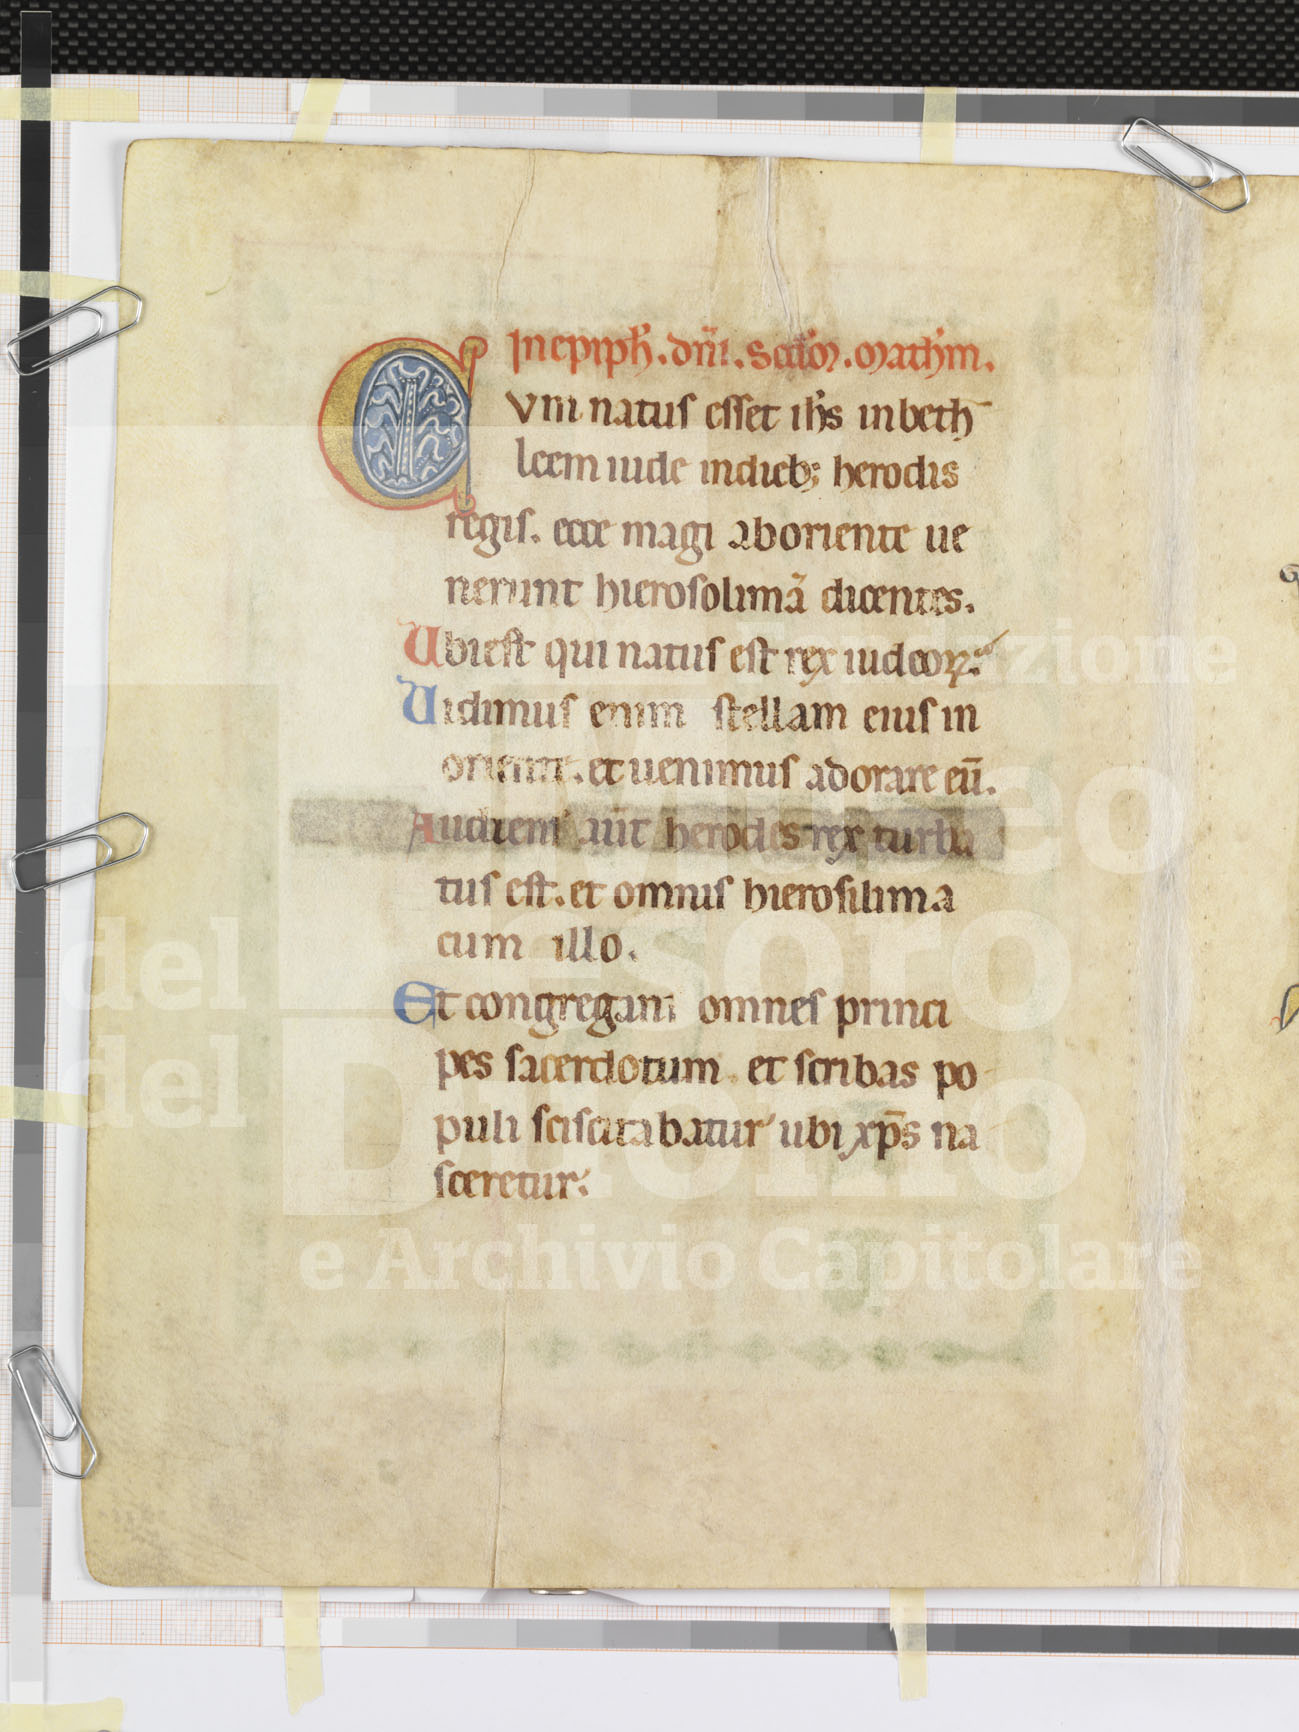 In epiph̄. dn̄i. Scd̄m. Matħm.
Cvm natus esset ih̄s in beth
leem iude in dieb; herodis
regis. ecce magi ab oriente ue
nerunt hierosolimā dicentes.
Ubi est qui natus est rex iudeoꝝ.
Uidimus enim stellam eius in
oriente. et uenimus adorare eū.
Audiens aūt herodes rex turba
tus est. et omnis hierosilima
cum illo.
Et congregans omnes princi
pes sacerdotum et scribas po
puli sciscitabatur ubi xp̄s na
sceretur.
Fondazione
Museo
del Tesoro
del Duomo
e Archivio Capitolare